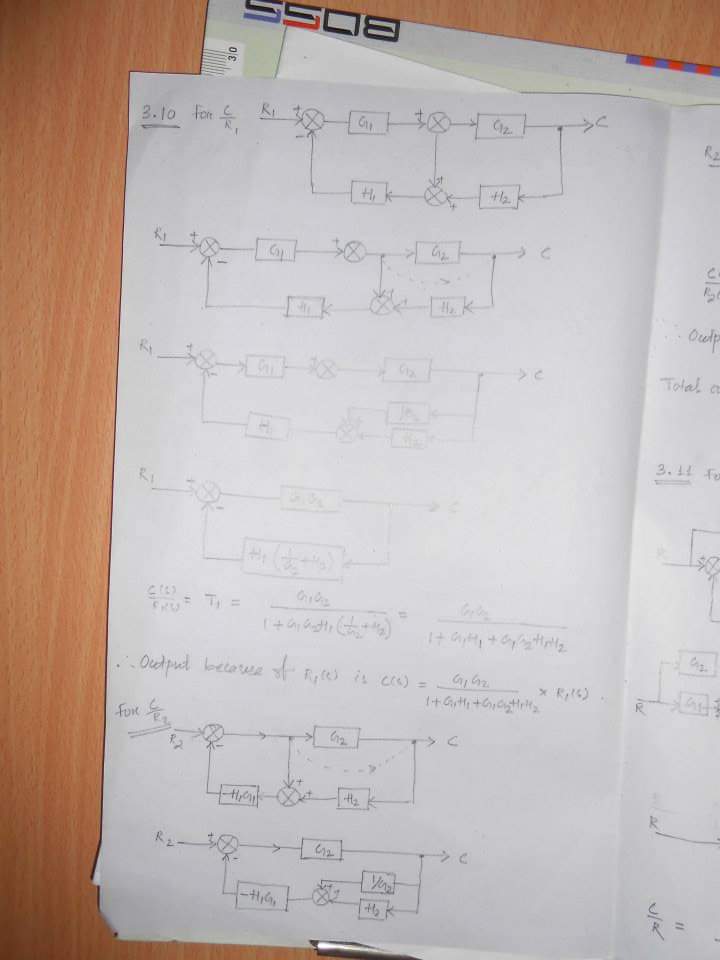 BOSS
30
3.10 For C/R1 R1 + - G1 + G2 C
H1 + + H2
R1 + - G1 + G2 C
H1 + + H2
R1 + - G1 + G2 C
H1 H2
R1 - G1G2 C
H1 (1/G2 + H2)
C(s)/R1(s) = T1 = G1G2 / 1 + G1G2H1 (1/G2 + H2) = G1G2 / 1 + G1H1 + G1G2H1H2
∴ Output because of R1(s) is C(s) = G1G2 / 1 + G1H1 + G1G2H1H2 × R1(s).
For C/R2 R2 - G2 C
-H1G1 + + H2
R2 + - G2 C
-H1G1 + + 1/G2
H2
R2
∴ Outp
Total
3.11 Fo
R
G2
R G1
R
C/R =